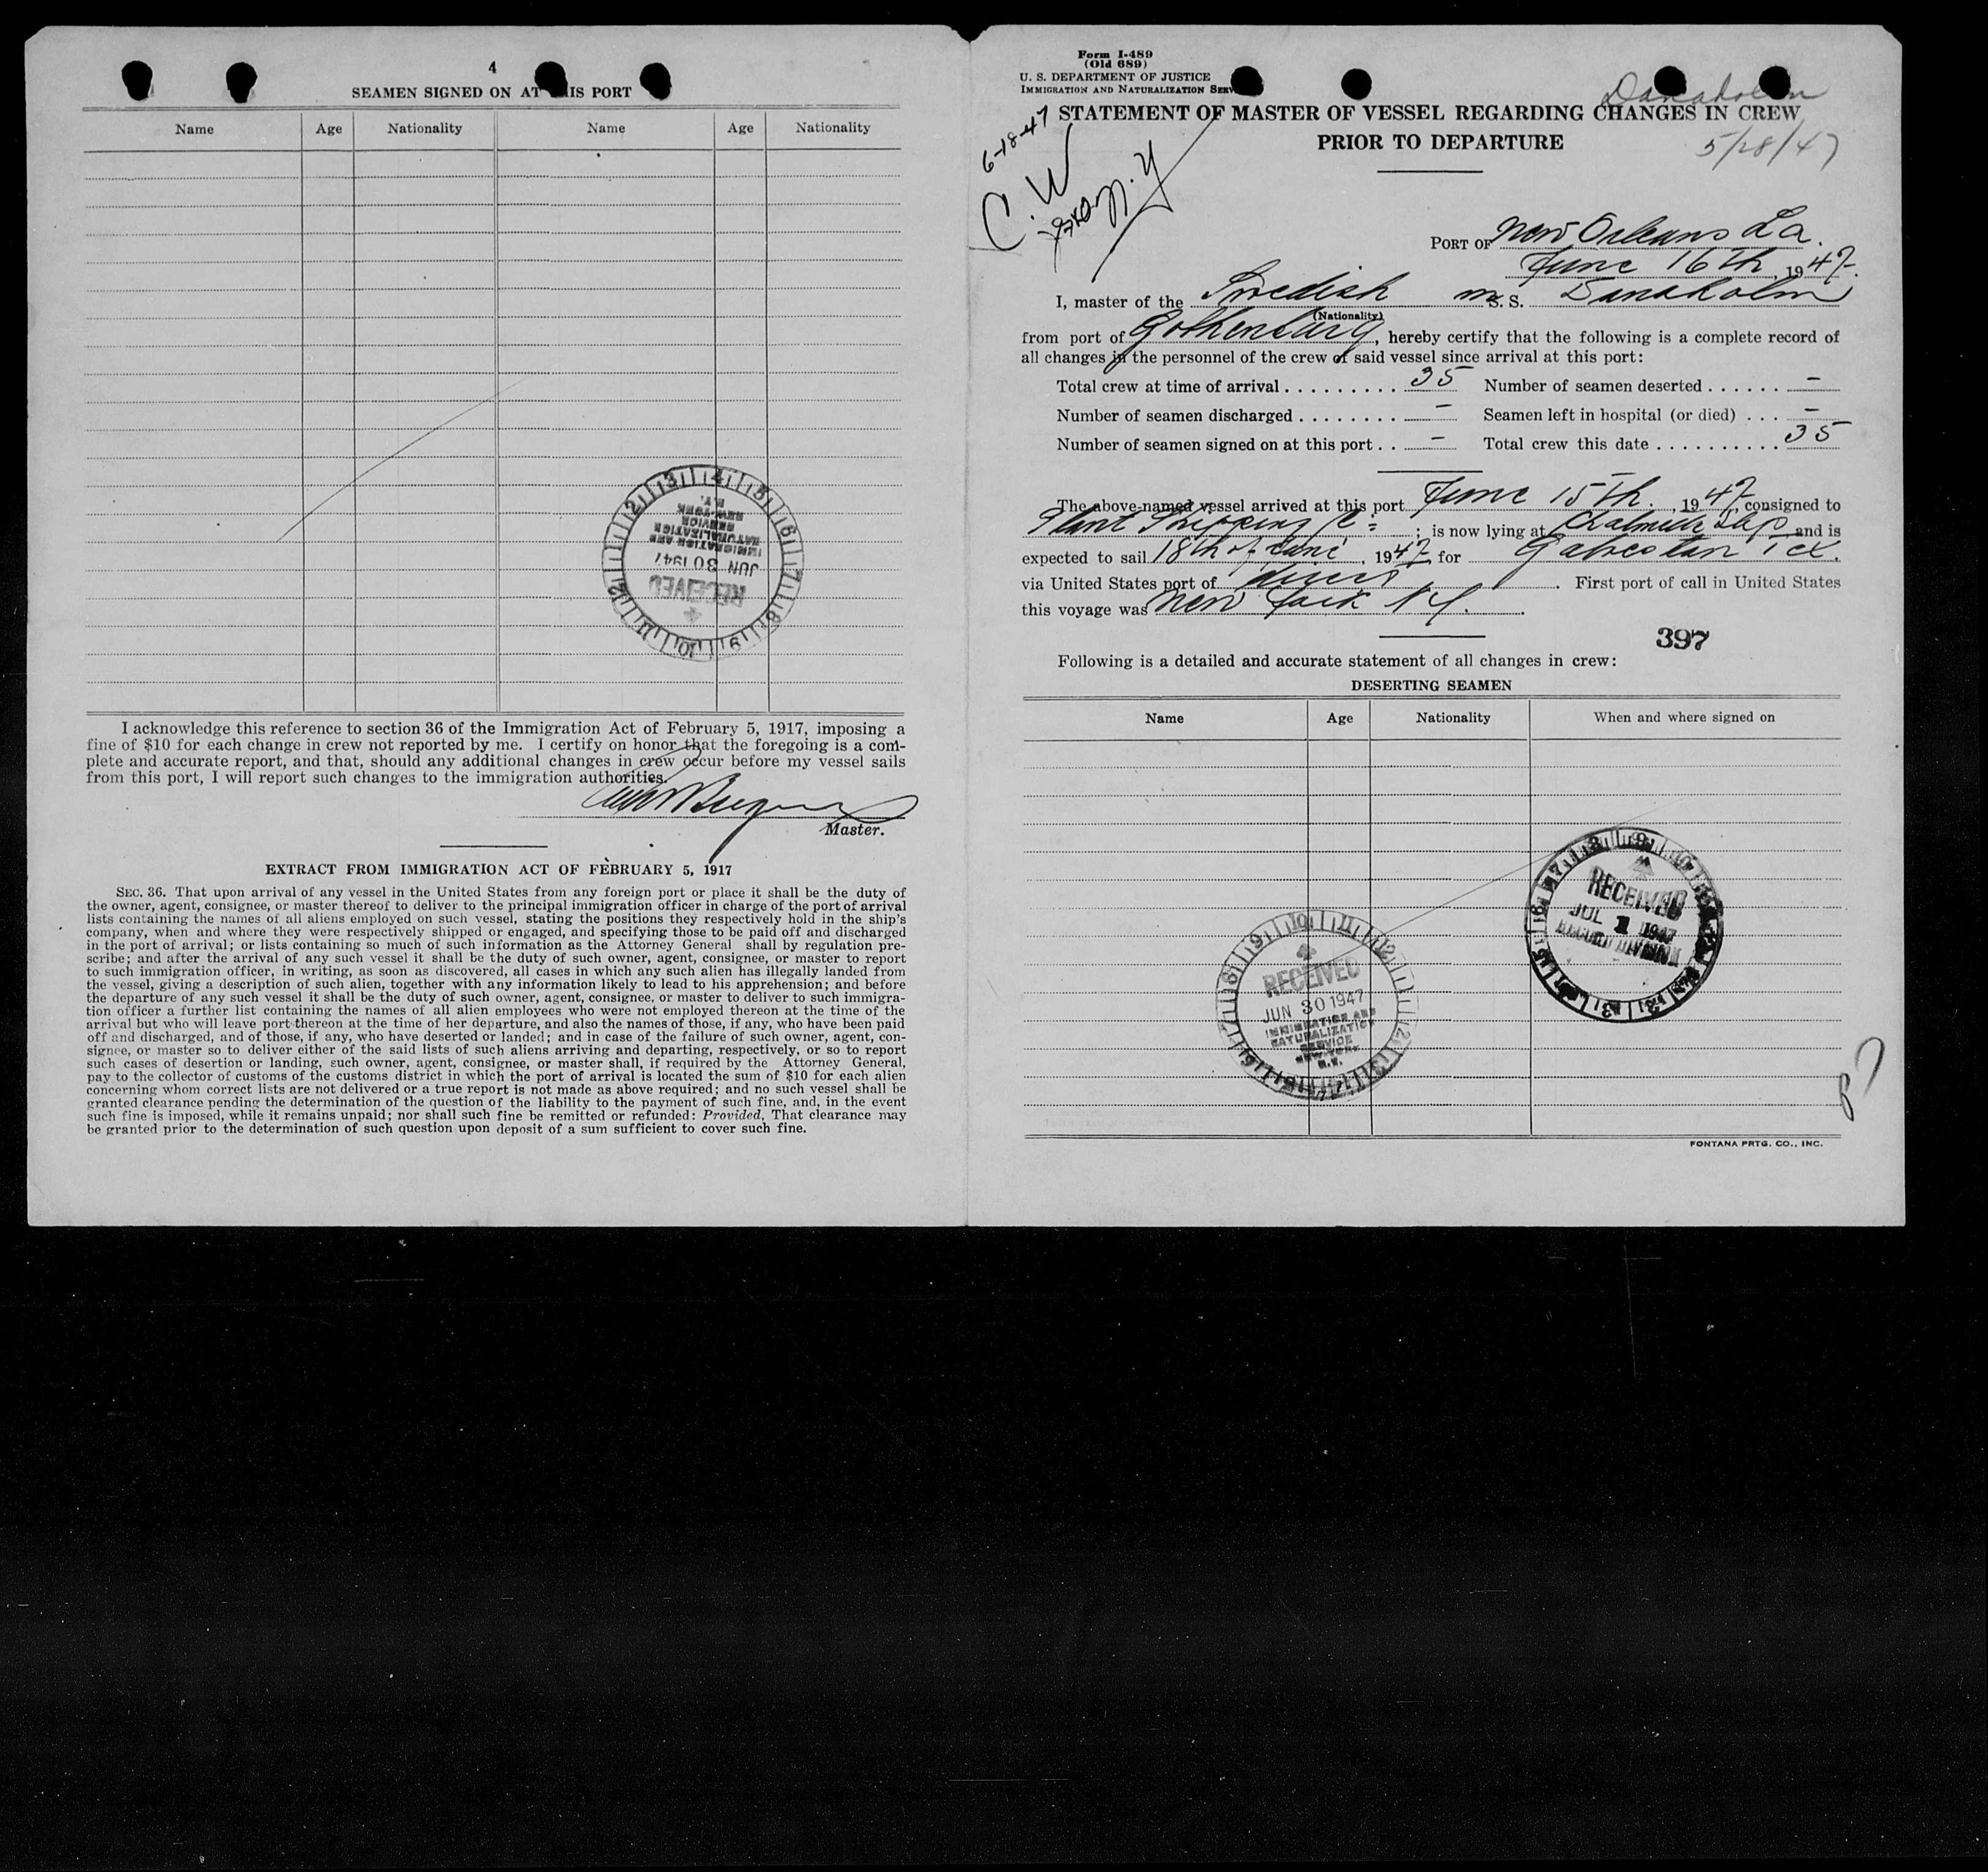 4
SEAMEN SIGNED ON AT THIS PORT
Name Age Nationality Name Age Nationality
RECEIVED
JUN 30 1947
IMMIGRATION AND
NATURALIZATION
SERVICE
NEW YORK
N.Y.
I acknowledge this reference to section 36 of the Immigration Act of February 5, 1917, imposing a
fine of $10 for each change in crew not reported by me. I certify on honor that the foregoing is a com-
plete and accurate report, and that, should any additional changes in crew occur before my vessel sails
from this port, I will report such changes to the immigration authorities.
Master.
EXTRACT FROM IMMIGRATION ACT OF FEBRUARY 5, 1917
SEC. 36. That upon arrival of any vessel in the United States from any foreign port or place it shall be the duty of
the owner, agent, consignee, or master thereof to deliver to the principal immigration officer in charge of the port of arrival
lists containing the names of all aliens employed on such vessel, stating the positions they respectively hold in the ship's
company, when and where they were respectively shipped or engaged, and specifying those to be paid off and discharged
in the port of arrival; or lists containing so much of such information as the Attorney General shall by regulation pre-
scribe; and after the arrival of any such vessel it shall be the duty of such owner, agent, consignee, or master to report
to such immigration officer, in writing, as soon as discovered, all cases in which any such alien has illegally landed from
the vessel, giving a description of such alien, together with any information likely to lead to his apprehension; and before
the departure of any such vessel it shall be the duty of such owner, agent, consignee, or master to deliver to such immigra-
tion officer a further list containing the names of all alien employees who were not employed thereon at the time of the
arrival but who will leave port thereon at the time of her departure, and also the names of those, if any, who have been paid
off and discharged, and of those, if any, who have deserted or landed; and in case of the failure of such owner, agent, con-
signee, or master so to deliver either of the said lists of such aliens arriving and departing, respectively, or so to report
such cases of desertion or landing, such owner, agent, consignee, or master shall, if required by the Attorney General,
pay to the collector of customs of the customs district in which the port of arrival is located the sum of $10 for each alien
concerning whom correct lists are not delivered or a true report is not made as above required; and no such vessel shall be
granted clearance pending the determination of the question of the liability to the payment of such fine, and, in the event
such fine is imposed, while it remains unpaid; nor shall such fine be remitted or refunded: Provided, That clearance may
be granted prior to the determination of such question upon deposit of a sum sufficient to cover such fine.
Form I-489
(Old 689)
U. S. DEPARTMENT OF JUSTICE
IMMIGRATION AND NATURALIZATION SERV
Danaholm
6-18-47
C. W
N.Y
STATEMENT OF MASTER OF VESSEL REGARDING CHANGES IN CREW
PRIOR TO DEPARTURE
5/28/47
PORT OF New Orleans La.
June 16th, 1947.
I, master of the Swedish m S. S. Danaholm
(Nationality)
from port of Gothenburg, hereby certify that the following is a complete record of
all changes in the personnel of the crew of said vessel since arrival at this port:
Total crew at time of arrival . . . . . . . . . . 35 Number of seamen deserted . . . . . . –
Number of seamen discharged . . . . . . . . – Seamen left in hospital (or died) . . . –
Number of seamen signed on at this port . . – Total crew this date . . . . . . . . . . 35
The above-named vessel arrived at this port June 15th., 1947, consigned to
Plant Shipping Co ; is now lying at Chalmette Slip and is
expected to sail 18th of June, 1947 for Galveston Tex.
via United States port of direct. First port of call in United States
this voyage was New York N.Y.
397
Following is a detailed and accurate statement of all changes in crew:
DESERTING SEAMEN
Name Age Nationality When and where signed on
RECEIVED
JUL 1 1947
RECORD DIVISION
RECEIVED
JUN 30 1947
IMMIGRATION AND
NATURALIZATION
SERVICE
NEW YORK
N.Y.
FONTANA PRTG. CO., INC.